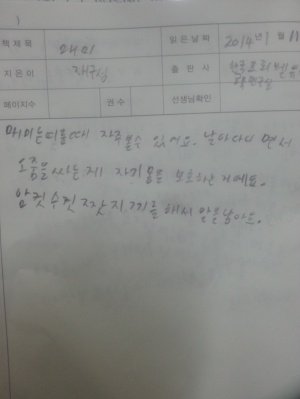 )
책 제목 매미 읽은날짜 2014년 1월 11
지은이 재구실 출판사 한국톨스토이
페이지수 권수 선생님확인
매미는 여름때 자주 볼수 있어요. 날아다니면서
오줌을 싸는 게 자기 몸을 보호하는 거예요.
암컷 수컷 짝짓기를 해서 알을 낳아요.